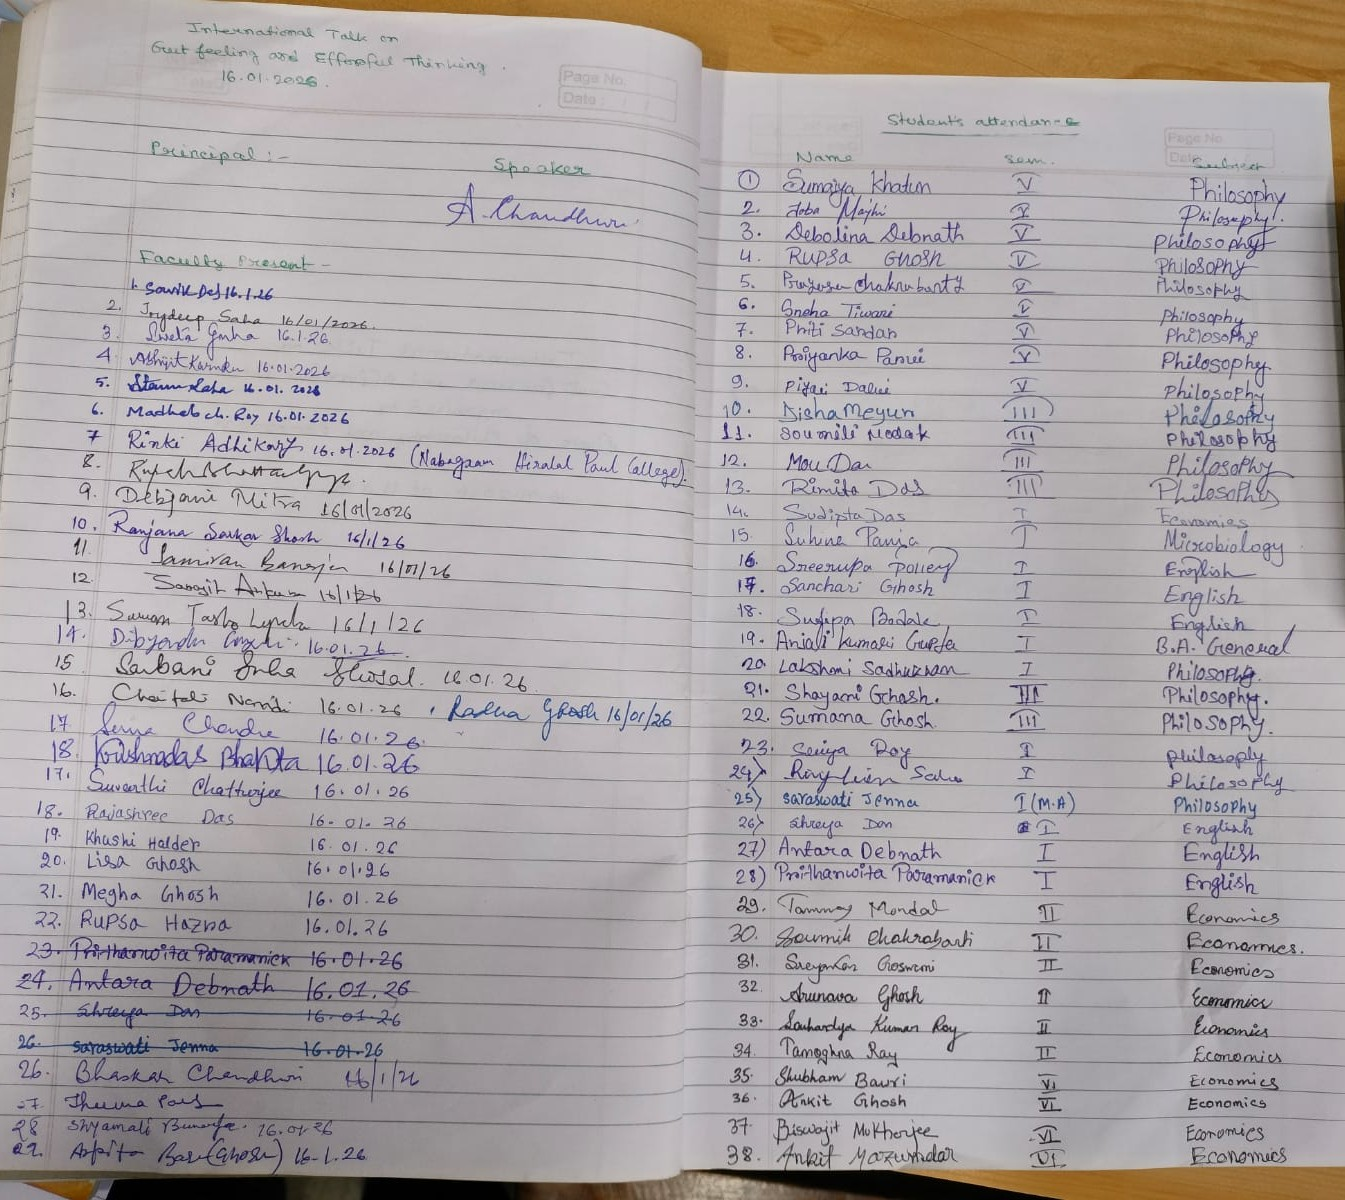 International Talk on
Gut feeling and Effortful Thinking.
16.01.2026.
Page No.
Date :
Principal :-
Speaker
A. Chaudhuri
Faculty Present -
1. Souvik Dey 16.1.26
2. Joydeep Saha 16/01/2026.
3. Sweta Guha 16.1.26.
4. Abhijit Karmakar 16.01.2026
5. Saha 16.01.2026
6. Madhab ch. Roy 16.01.2026
7 Rinki Adhikary 16.01.2026 (Nabagram Hiralal Paul College).
8. Bhattacharya.
9. Debjani Mitra 16/01/2026
10. Ranjana Sarkar Ghosh 16/1/26
11. Samiran Banerjee 16/01/26
12. 16/1/26
13. Suman 16/1/26
14. Dibyendu 16.01.26.
15 Sarbani Guha Ghosal. 16.01.26.
16. Chaitali Nandi 16.01.26 , Radha Ghosh 16/01/26
17 Chandra 16.01.26.
18. Krishnadas Bhakta 16.01.26
17. Suvarthi Chatterjee 16.01.26
18. Rajashree Das 16.01.26
19. Khushi Halder 16.01.26
20. Lisa Ghosh 16.01.26
21. Megha Ghosh 16.01.26
22. Rupsa Hazra 16.01.26
23. Prithanwita Paramanick 16.01.26
24. Antara Debnath 16.01.26
25. Shreya Don 16.01.26
26. Saraswati Jenna 16.01.26
26. Bhaskar Chandhuri 16/1/26
27.
28 Shyamali Banerjee. 16.01.26
29. Arpita Basu (Ghosh) 16.1.26
Students attendance
Page No
Name Sem. Subject
① Sumaiya Khatun V Philosophy
2. Joba Majhi V Philosophy.
3. Debolina Debnath V Philosophy
4. Rupsa Ghosh V Philosophy
5. Chakraborty V Philosophy
6. Sneha Tiwari V Philosophy
7. Priti Sardar V Philosophy
8. Priyanka Parui V Philosophy.
9. Piyali Dalui V Philosophy
10. Disha Meyur III Philosophy
11. Soumili Modak III Philosophy
12. Mou Das III Philosophy
13. Rimita Das III Philosophy
14. Sudipta Das I Economics
15. Suhina Panja I Microbiology
16. Sreerupa Polley I English
17. Sanchari Ghosh I English
18. Sudipa Bodak I English
19. Anjali Kumari Gupta I B.A. General
20. Lakshmi Sadhukhan I Philosophy.
21. Shayani Ghosh. III Philosophy.
22. Sumana Ghosh III Philosophy.
23. Roy I Philosophy
24) I Philosophy
25) Saraswati Jenna I (M.A) Philosophy
26) Shreya Don I English
27) Antara Debnath I English
28) Prithanwita Paramanick I English
29. Tanmoy Mondal II Economics
30. Soumik Chakrabarti II Economics.
31. Sreyankar Goswami II Economics
32. Arunava Ghosh II Economics
33. Souhardya Kumar Roy II Economics
34. Tamoghna Ray II Economics
35. Shubham Bauri VI Economics
36. Ankit Ghosh VI Economics
37. Biswajit Mukherjee VI Economics
38. Ankit Mazumdar VI Economics